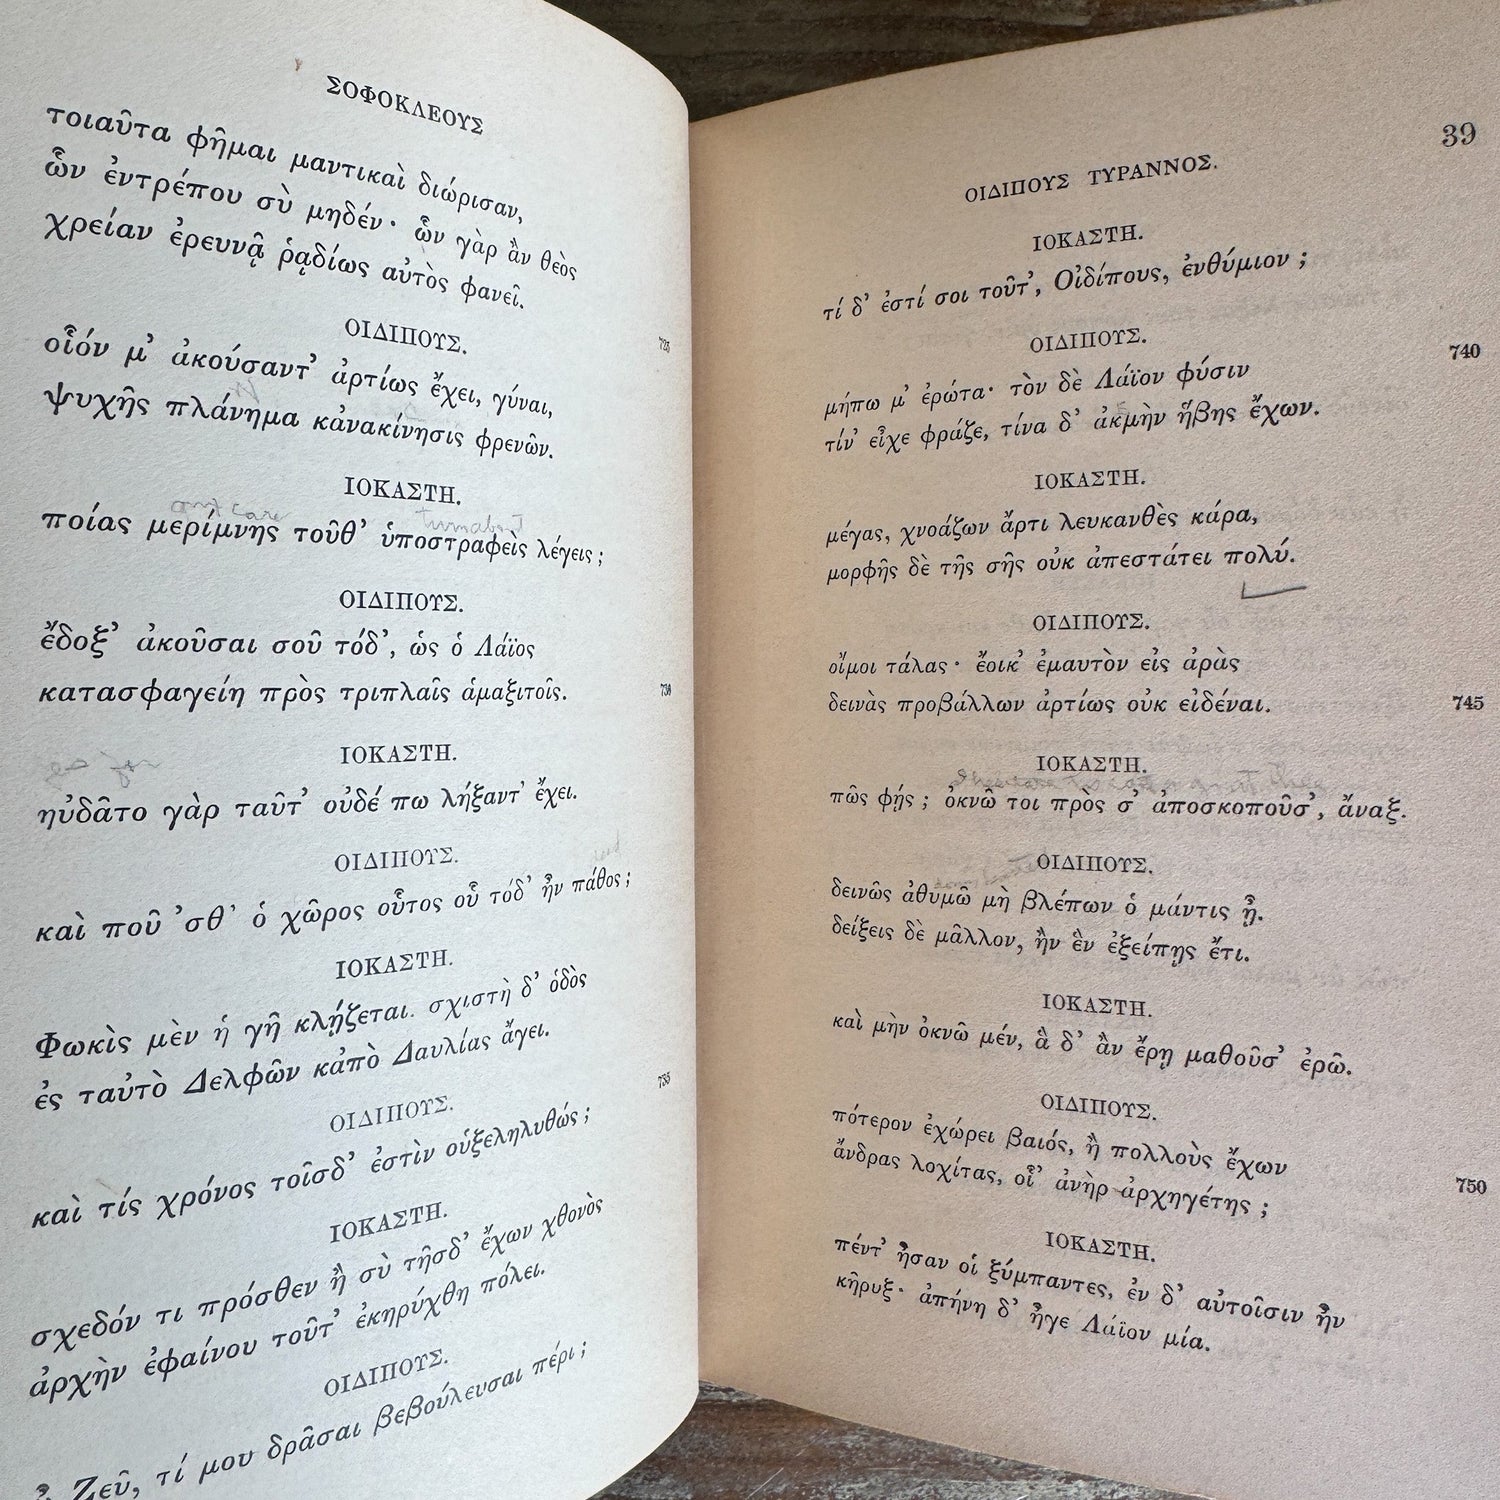 ΣΟΦΟΚΛΕΟΥΣ
τοιαῦτα φῆμαι μαντικαὶ διώρισαν,
ὧν ἐντρέπου σὺ μηδέν· ὧν γὰρ ἂν θεὸς
χρείαν ἐρευνᾷ ῥᾳδίως αὐτὸς φανεῖ.
ΟΙΔΙΠΟΥΣ.
οἷόν μ’ ἀκούσαντ’ ἀρτίως ἔχει, γύναι,
725
ψυχῆς πλάνημα κἀνακίνησις φρενῶν.
ΙΟΚΑΣΤΗ.
care turnabout
ποίας μερίμνης τοῦθ’ ὑποστραφεὶς λέγεις;
ΟΙΔΙΠΟΥΣ.
ἔδοξ’ ἀκοῦσαι σοῦ τόδ’, ὡς ὁ Λάϊος
κατασφαγείη πρὸς τριπλαῖς ἁμαξιτοῖς.
730
ΙΟΚΑΣΤΗ.
ηὐδᾶτο γὰρ ταῦτ’ οὐδέ πω λήξαντ’ ἔχει.
ΟΙΔΙΠΟΥΣ.
καὶ ποῦ ’σθ’ ὁ χῶρος οὗτος οὗ τόδ’ ἦν πάθος;
ΙΟΚΑΣΤΗ.
Φωκὶς μὲν ἡ γῆ κλῄζεται. σχιστὴ δ’ ὁδὸς
ἐς ταὐτὸ Δελφῶν κἀπὸ Δαυλίας ἄγει.
ΟΙΔΙΠΟΥΣ.
735
καὶ τίς χρόνος τοῖσδ’ ἐστὶν οὑξεληλυθώς;
ΙΟΚΑΣΤΗ.
σχεδόν τι πρόσθεν ἢ σὺ τῆσδ’ ἔχων χθονὸς
ἀρχὴν ἐφαίνου τοῦτ’ ἐκηρύχθη πόλει.
ΟΙΔΙΠΟΥΣ.
Ζεῦ, τί μου δρᾶσαι βεβούλευσαι πέρι;
39
ΟΙΔΙΠΟΥΣ ΤΥΡΑΝΝΟΣ.
ΙΟΚΑΣΤΗ.
τί δ’ ἐστί σοι τοῦτ’, Οἰδίπους, ἐνθύμιον;
ΟΙΔΙΠΟΥΣ.
μήπω μ’ ἐρώτα· τὸν δὲ Λάϊον φύσιν
740
τίν’ εἶχε φράζε, τίνα δ’ ἀκμὴν ἥβης ἔχων.
ΙΟΚΑΣΤΗ.
μέγας, χνοάζων ἄρτι λευκανθὲς κάρα,
μορφῆς δὲ τῆς σῆς οὐκ ἀπεστάτει πολύ.
ΟΙΔΙΠΟΥΣ.
οἴμοι τάλας· ἔοικ’ ἐμαυτὸν εἰς ἀρὰς
δεινὰς προβάλλων ἀρτίως οὐκ εἰδέναι.
745
ΙΟΚΑΣΤΗ.
πῶς φῄς; ὀκνῶ τοι πρὸς σ’ ἀποσκοποῦσ’, ἄναξ.
ΟΙΔΙΠΟΥΣ.
δεινῶς ἀθυμῶ μὴ βλέπων ὁ μάντις ᾖ.
δείξεις δὲ μᾶλλον, ἢν ἓν ἐξείπῃς ἔτι.
ΙΟΚΑΣΤΗ.
καὶ μὴν ὀκνῶ μέν, ἃ δ’ ἂν ἔρῃ μαθοῦσ’ ἐρῶ.
ΟΙΔΙΠΟΥΣ.
πότερον ἐχώρει βαιός, ἢ πολλοὺς ἔχων
750
ἄνδρας λοχίτας, οἷ’ ἀνὴρ ἀρχηγέτης;
ΙΟΚΑΣΤΗ.
πέντ’ ἦσαν οἱ ξύμπαντες, ἐν δ’ αὐτοῖσιν ἦν
κῆρυξ· ἀπήνη δ’ ἦγε Λάϊον μία.